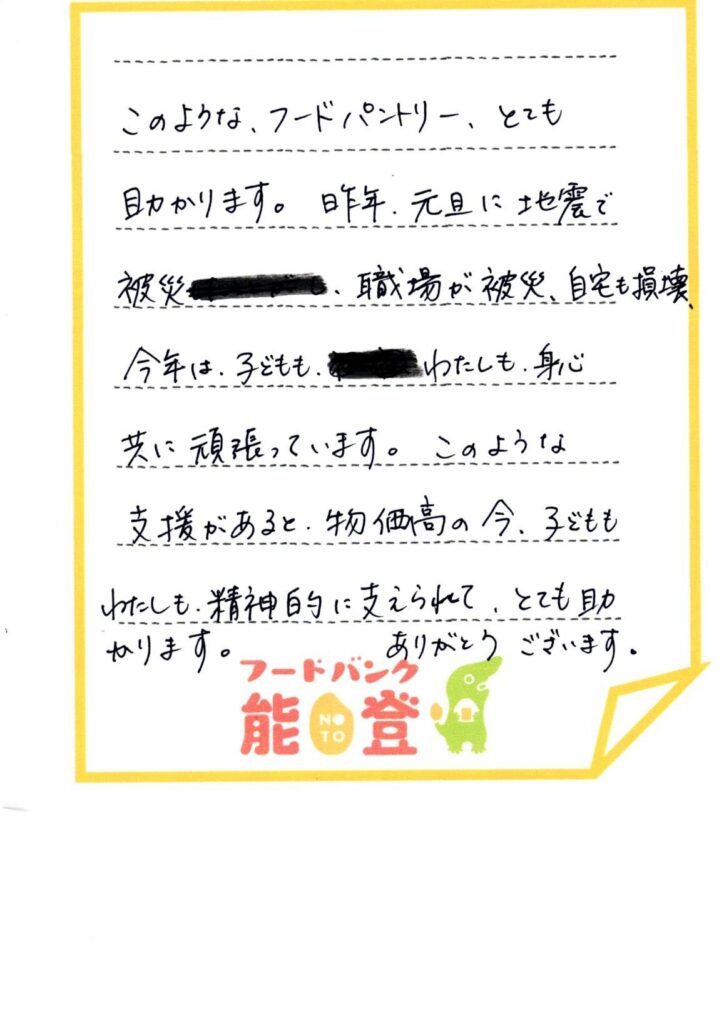 このような、フードパントリー、とても
助かります。昨年、元旦に地震で
被災、職場が被災、自宅も損壊、
今年は、子どもも、わたしも、身心
共に頑張っています。このような
支援があると、物価高の今、子どもも
わたしも、精神的に支えられて、とても助
かります。ありがとうございます。
フードバンク
能 NOTO 登